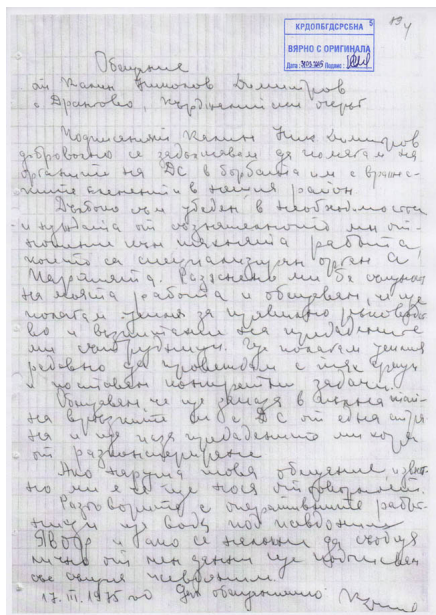 КРДОПБГДСРСБНА 5
ВЯРНО С ОРИГИНАЛА
Дата: Подпис:
Обещание
от Калин Николов Димитров
с. Дрангово, Кърджалийски окръг
Подписаният Калин Ник. Димитров
доброволно се задължавам да помагам на
органите на ДС в борбата им с вражес-
ките елементи в нашия район.
Дълбоко съм убеден в необходимостта
и нуждата от съзнателното ми от-
ношение към тяхната работа,
които са специализиран орган на
Партията. Разяснено ми бе
на моята работа и обещавам, че ще
полагам усилия за правилно ръководс-
во и възпитание на предадените
ми сътрудници. Ще полагам усилия
редовно да провеждам с тях срещи
и поставям конкретни задачи.
Обещавам че ще запазя в пълна тай-
на връзките ми с ДС от една стра-
на и ще пазя предадените ми хора
от разконспириране.
Ако наруша това обещание, извест-
но ми е че ще нося отговорност.
Разговорите с оперативните работ-
ници ще водя под псевдонима
ЯВОР и ако се наложи да съобщя
лично от мен данни ще подписвам
със същия псевдоним.
17.III.1975 год Дал обещанието: